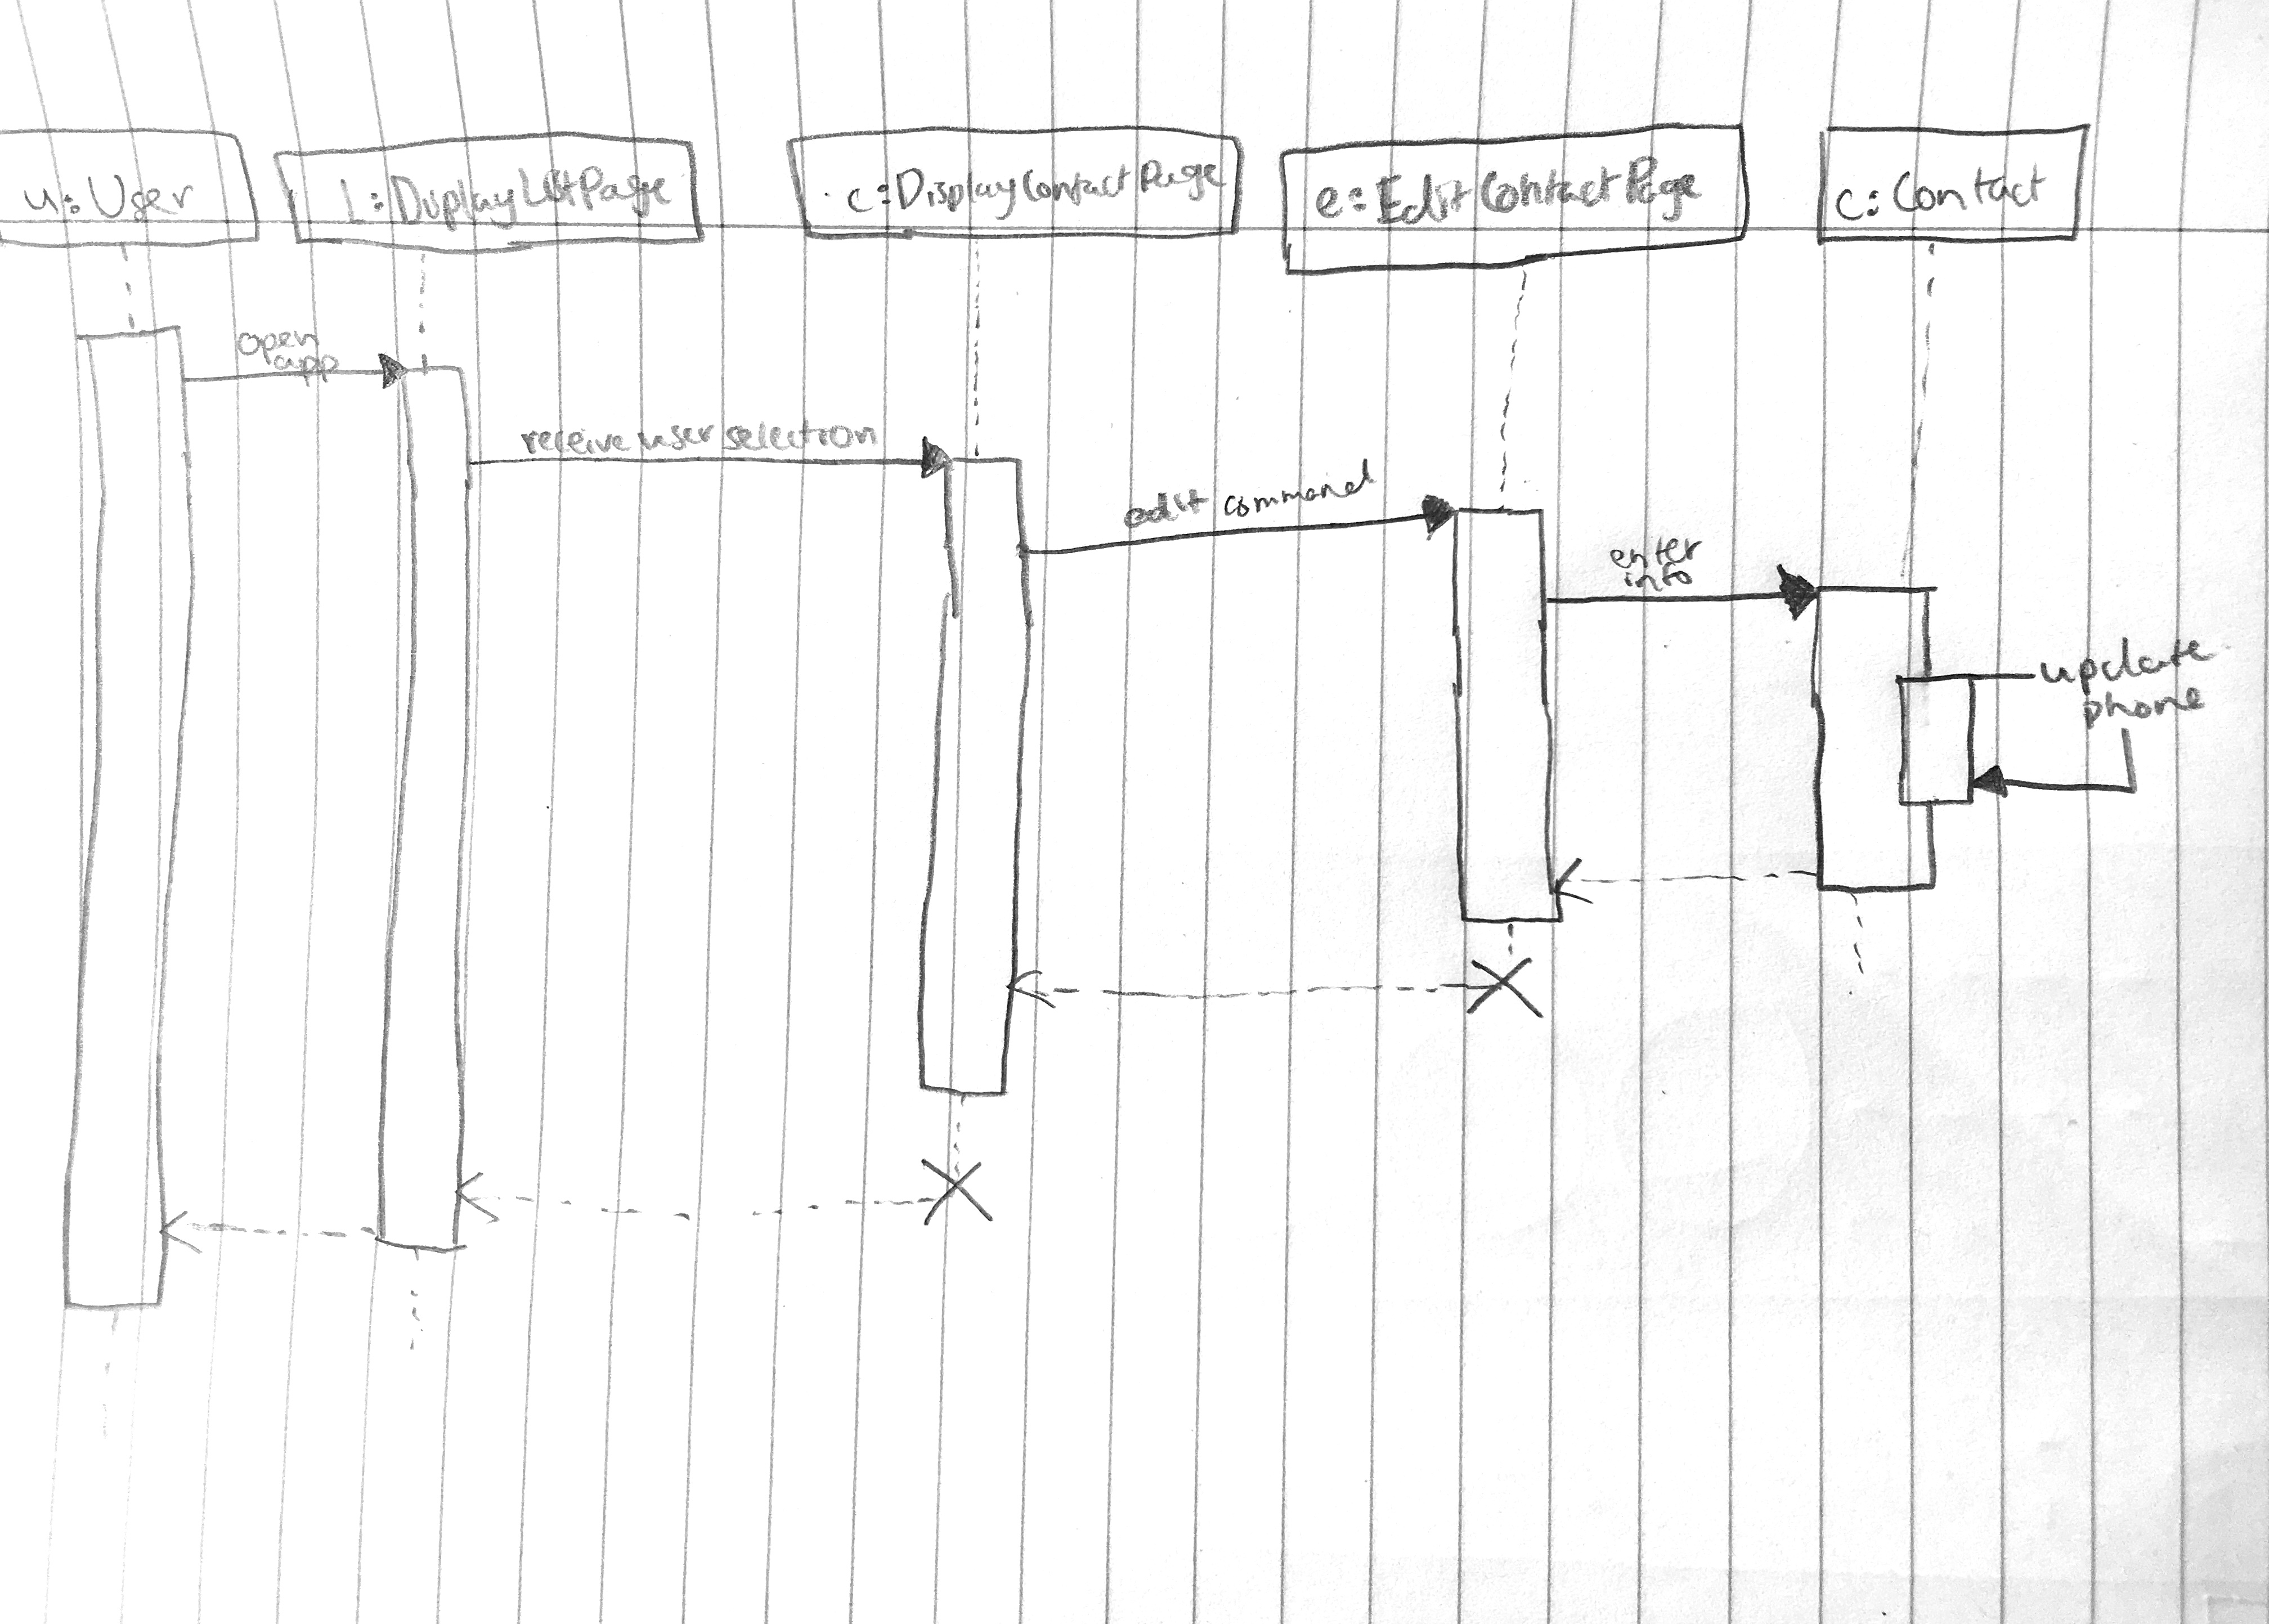 u: User
l: DisplayListPage
c: DisplayContactPage
e: EditContactPage
c: Contact
open
app
receive user selection
edit command
enter
info
update
phone